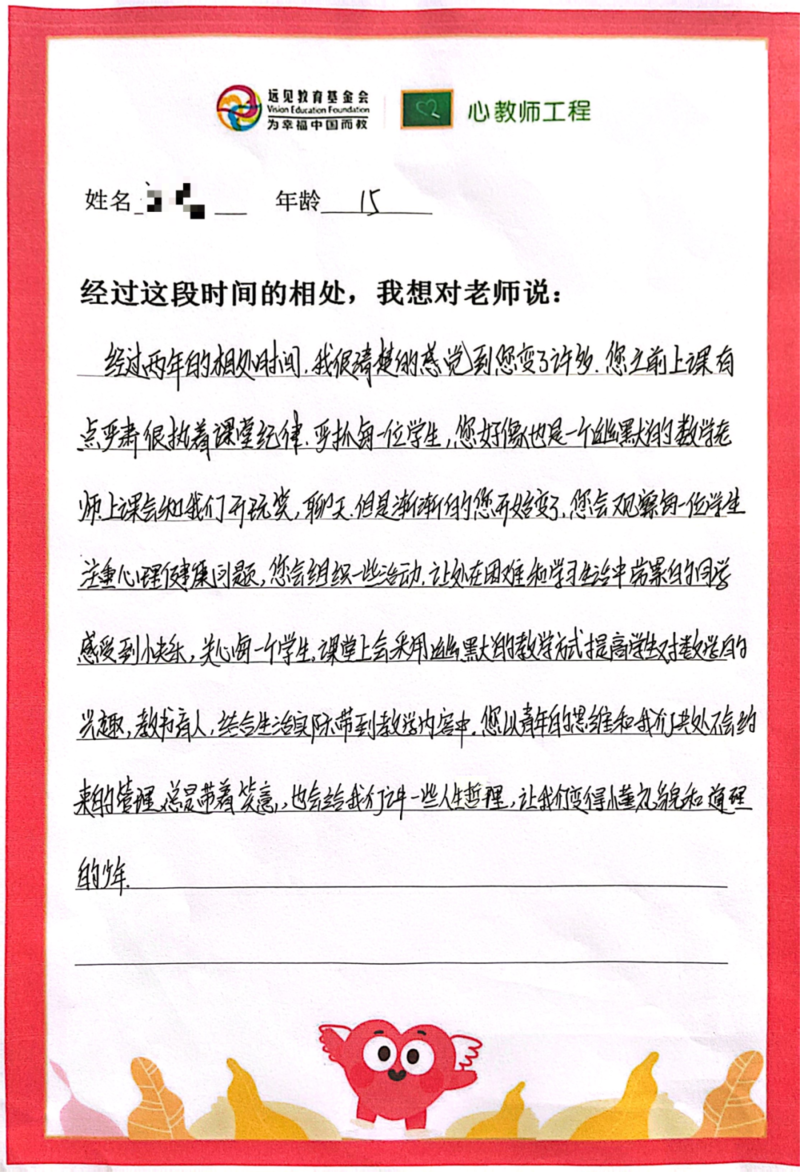 远见教育基金会
Vision Education Foundation
为幸福中国而教
心教师工程
姓名 年龄 15
经过这段时间的相处，我想对老师说：
经过两年的相处时间，我很清楚的感觉到您变了许多。您之前上课有
点严肃很执着课堂纪律，严抓每一位学生，您好像也是一个幽默的数学老
师上课会和我们开玩笑，聊天。但是渐渐的您开始变了，您会观察每一位学生
注重心理健康问题，您会组织一些活动，让处在困难和学习生活中常累的同学
感受到快乐，关心每一个学生，课堂上会采用幽默的教学方式提高学生对数学的
兴趣，教书育人，结合生活实际带到教学内容中。您以青年的思维和我们共处不会约
束的管理，总是带着笑意，也会给我们讲一些人生哲理，让我们变得懂礼貌和道理
的少年。